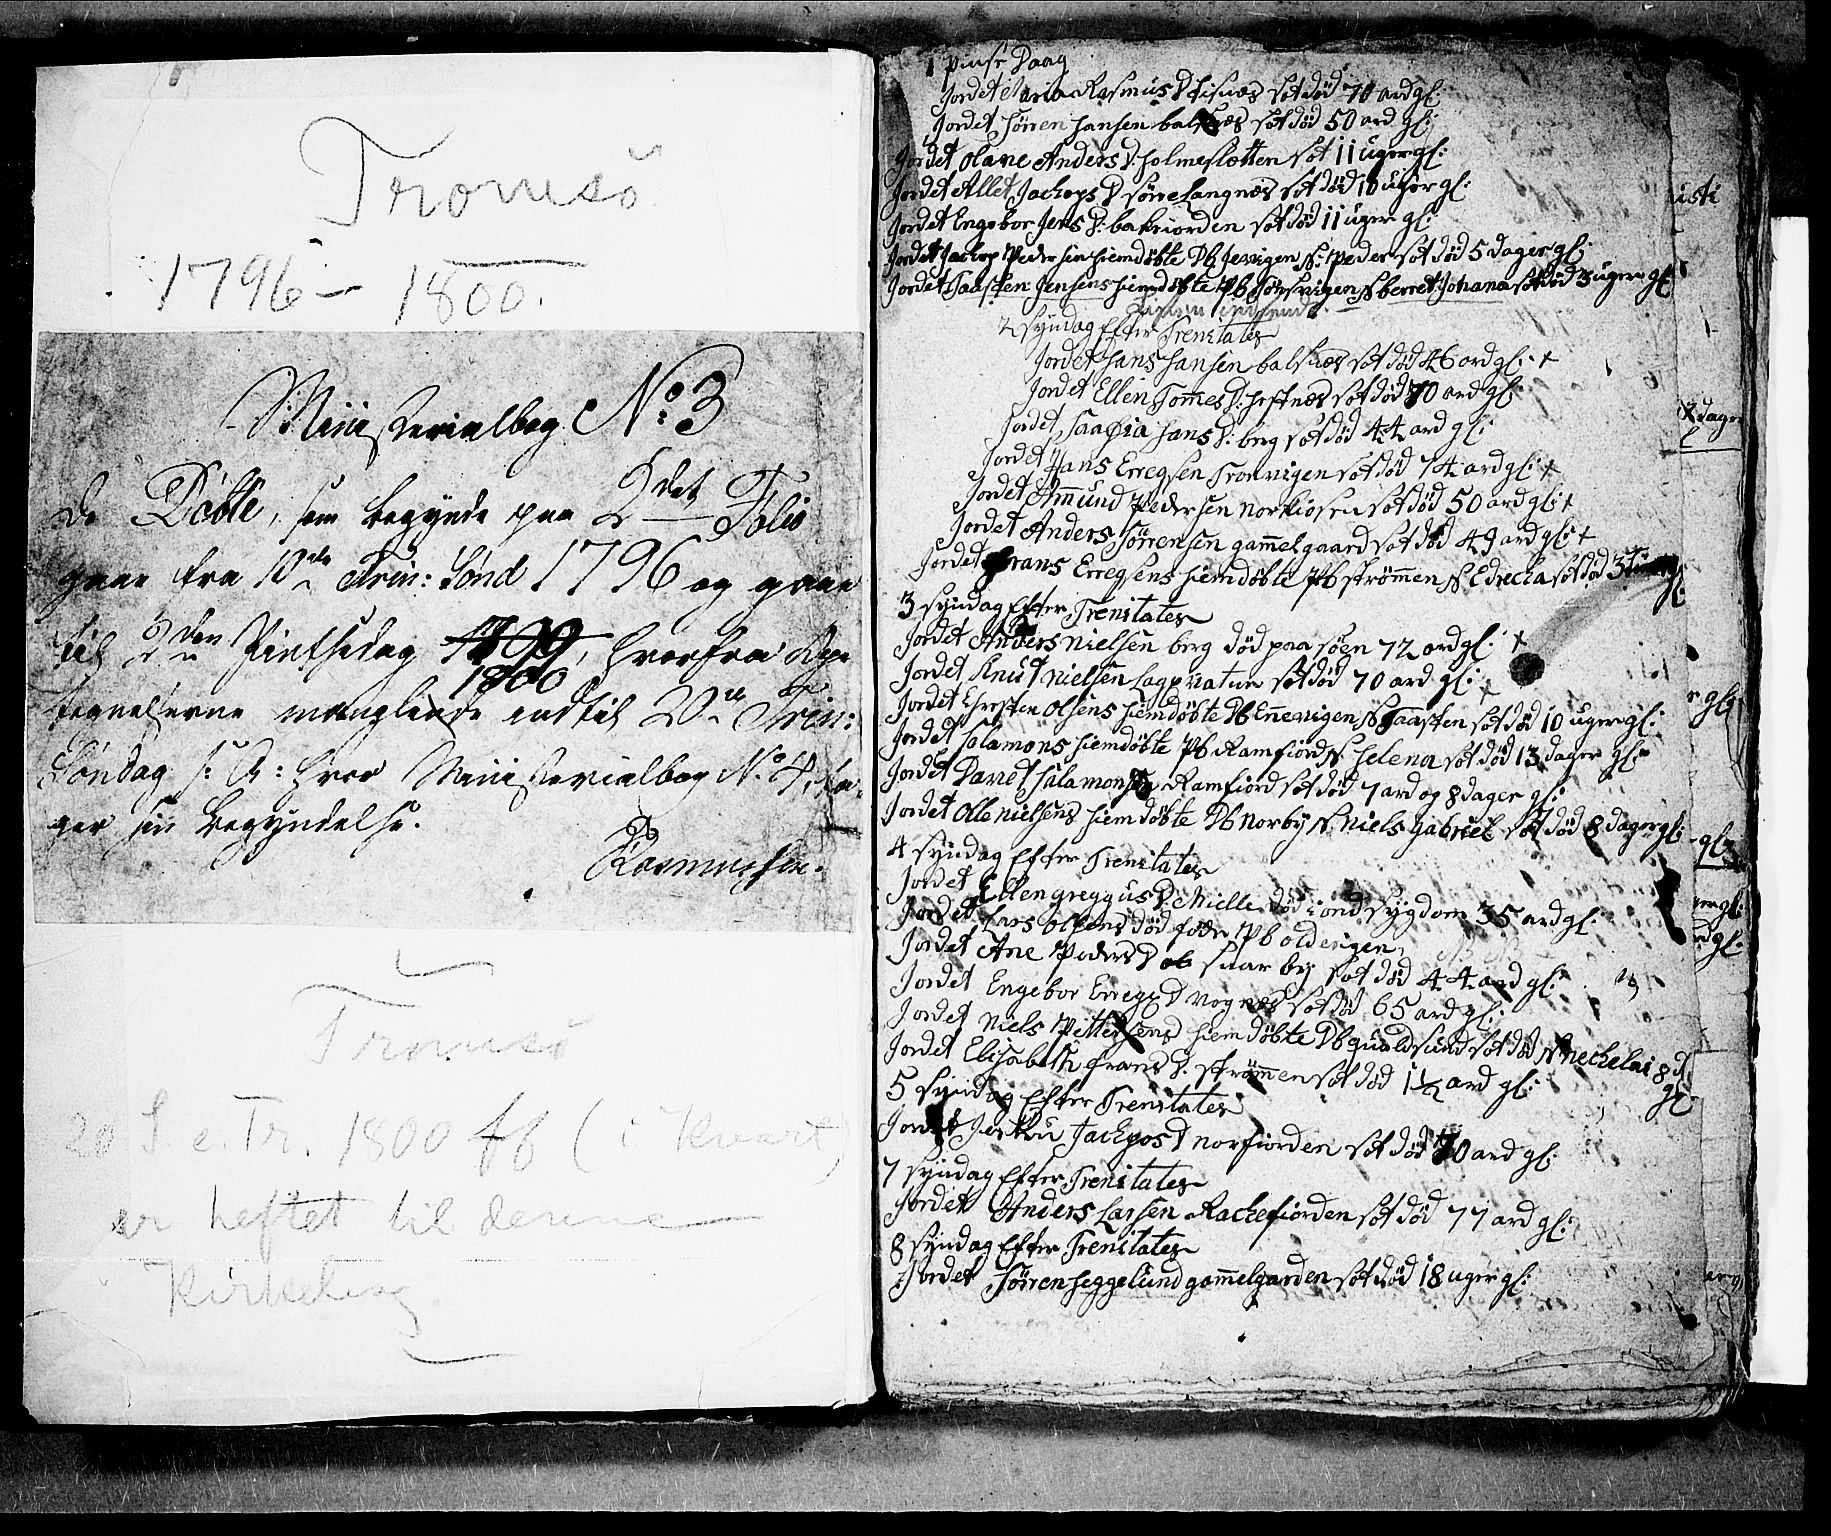 Tromsö
1796 — 1800.
Ministerialbog No: 3
De Döbte, som begynde paa 2det Folio
gaae fra 10de Trin: Sönd 1796 og gaae
til 2den Pintsedag 1800, hvorfra Op-
tegnelserne manglende indtil 20de Trin:
Söndag s: A: hvor Ministerialbog No. 4, ta-
ger sin Begyndelse.
Rasmussen.
Tromsö
20 S. e. Tr. 1800 ff (i Kvart)
er heftet til denne
Kirkebog.
1 pinse Daag
Jordet Maria Rasmus D: sot död 70 ard gl:
Jordet Sören Hansen balsnæs sot död 50 ard gl:
Jordet Olane Anders D: holmeslotten sot 11 uger gl:
Jordet Allet Jackops D sörre Langnæs sot död 10 uger gl:
Jordet Engebor Jens D: bakeiorden sot död 11 uger gl:
Jordet Jackop Pedersen hiemdöbte Db Jervigen N: peder sot död 5 dager gl:
Jordet Taasten Jensens hiemdöbte Pb N berret Johana sot död 3 uger gl
2 syndag Efter Trenitates
Jordet Hans Hansen balsnæs sot död 46 ard gl: +
Jordet Ellen Tommes D: sot död 70 ard gl
Jordet Saaphia Hans D: berg sot död 44 ard gl:
Jordet Hans Erregsen Tronvigen sot död 74 ard gl: +
Jordet Ammund Pedersen norkiosen sot död 50 ard gl: +
Jordet Anders Sörrensen gammelgaard sot död 49 ard gl: +
Jordet frans Erregsens hiemdöbte Pb strömmen N Edrecka sot död 3
gl:
3 syndag Efter Trenitates
Jordet Anders Nielsen berg död paa söen 72 ard gl: +
Jordet Knut Nielsen sot död 70 ard gl: +
Jordet Chresten Olsens hiemdöbte Db Ennevigen N Taasten sot död 10 uger gl:
Jordet Salamons hiemdöbte Pb Ramfiord N helena sot död 13 dager gl:
Jordet Davet Salamonsen Ramfiord sot död 7 ard og 8 dager gl:
Jordet Olle Nielsens hiemdöbte Db Norby N Niels Gabriel sot död 8 dager gl:
4 syndag Efter Trenitates
Jordet Ellen greggus D: Mielle död i ond sygdom 35 ard gl:
Jordet Lars Olsens död föde Pb oldervigen
Jordet Ane Peders D snarby sot död 44 ard gl:
Jordet Engebor Erregs D vognæs sot död 65 ard gl:
Jordet Niels Pettersens hiemdöbte Db qualdsund sot död N mechelai 8 d
gl:
Jordet Elisabeth frans D: strömmen sot död 1½ ard gl:
5 syndag Efter Trenitates
Jordet Jackpos D norfiorden sot död 70 ard gl:
7 syndag Efter Trenitates
Jordet Anders Larsen Rachefiorden sot död 77 ard gl:
8 syndag Efter Trenitates
Jordet Sörren heggelund gammelgarden sot död 18 uger gl: